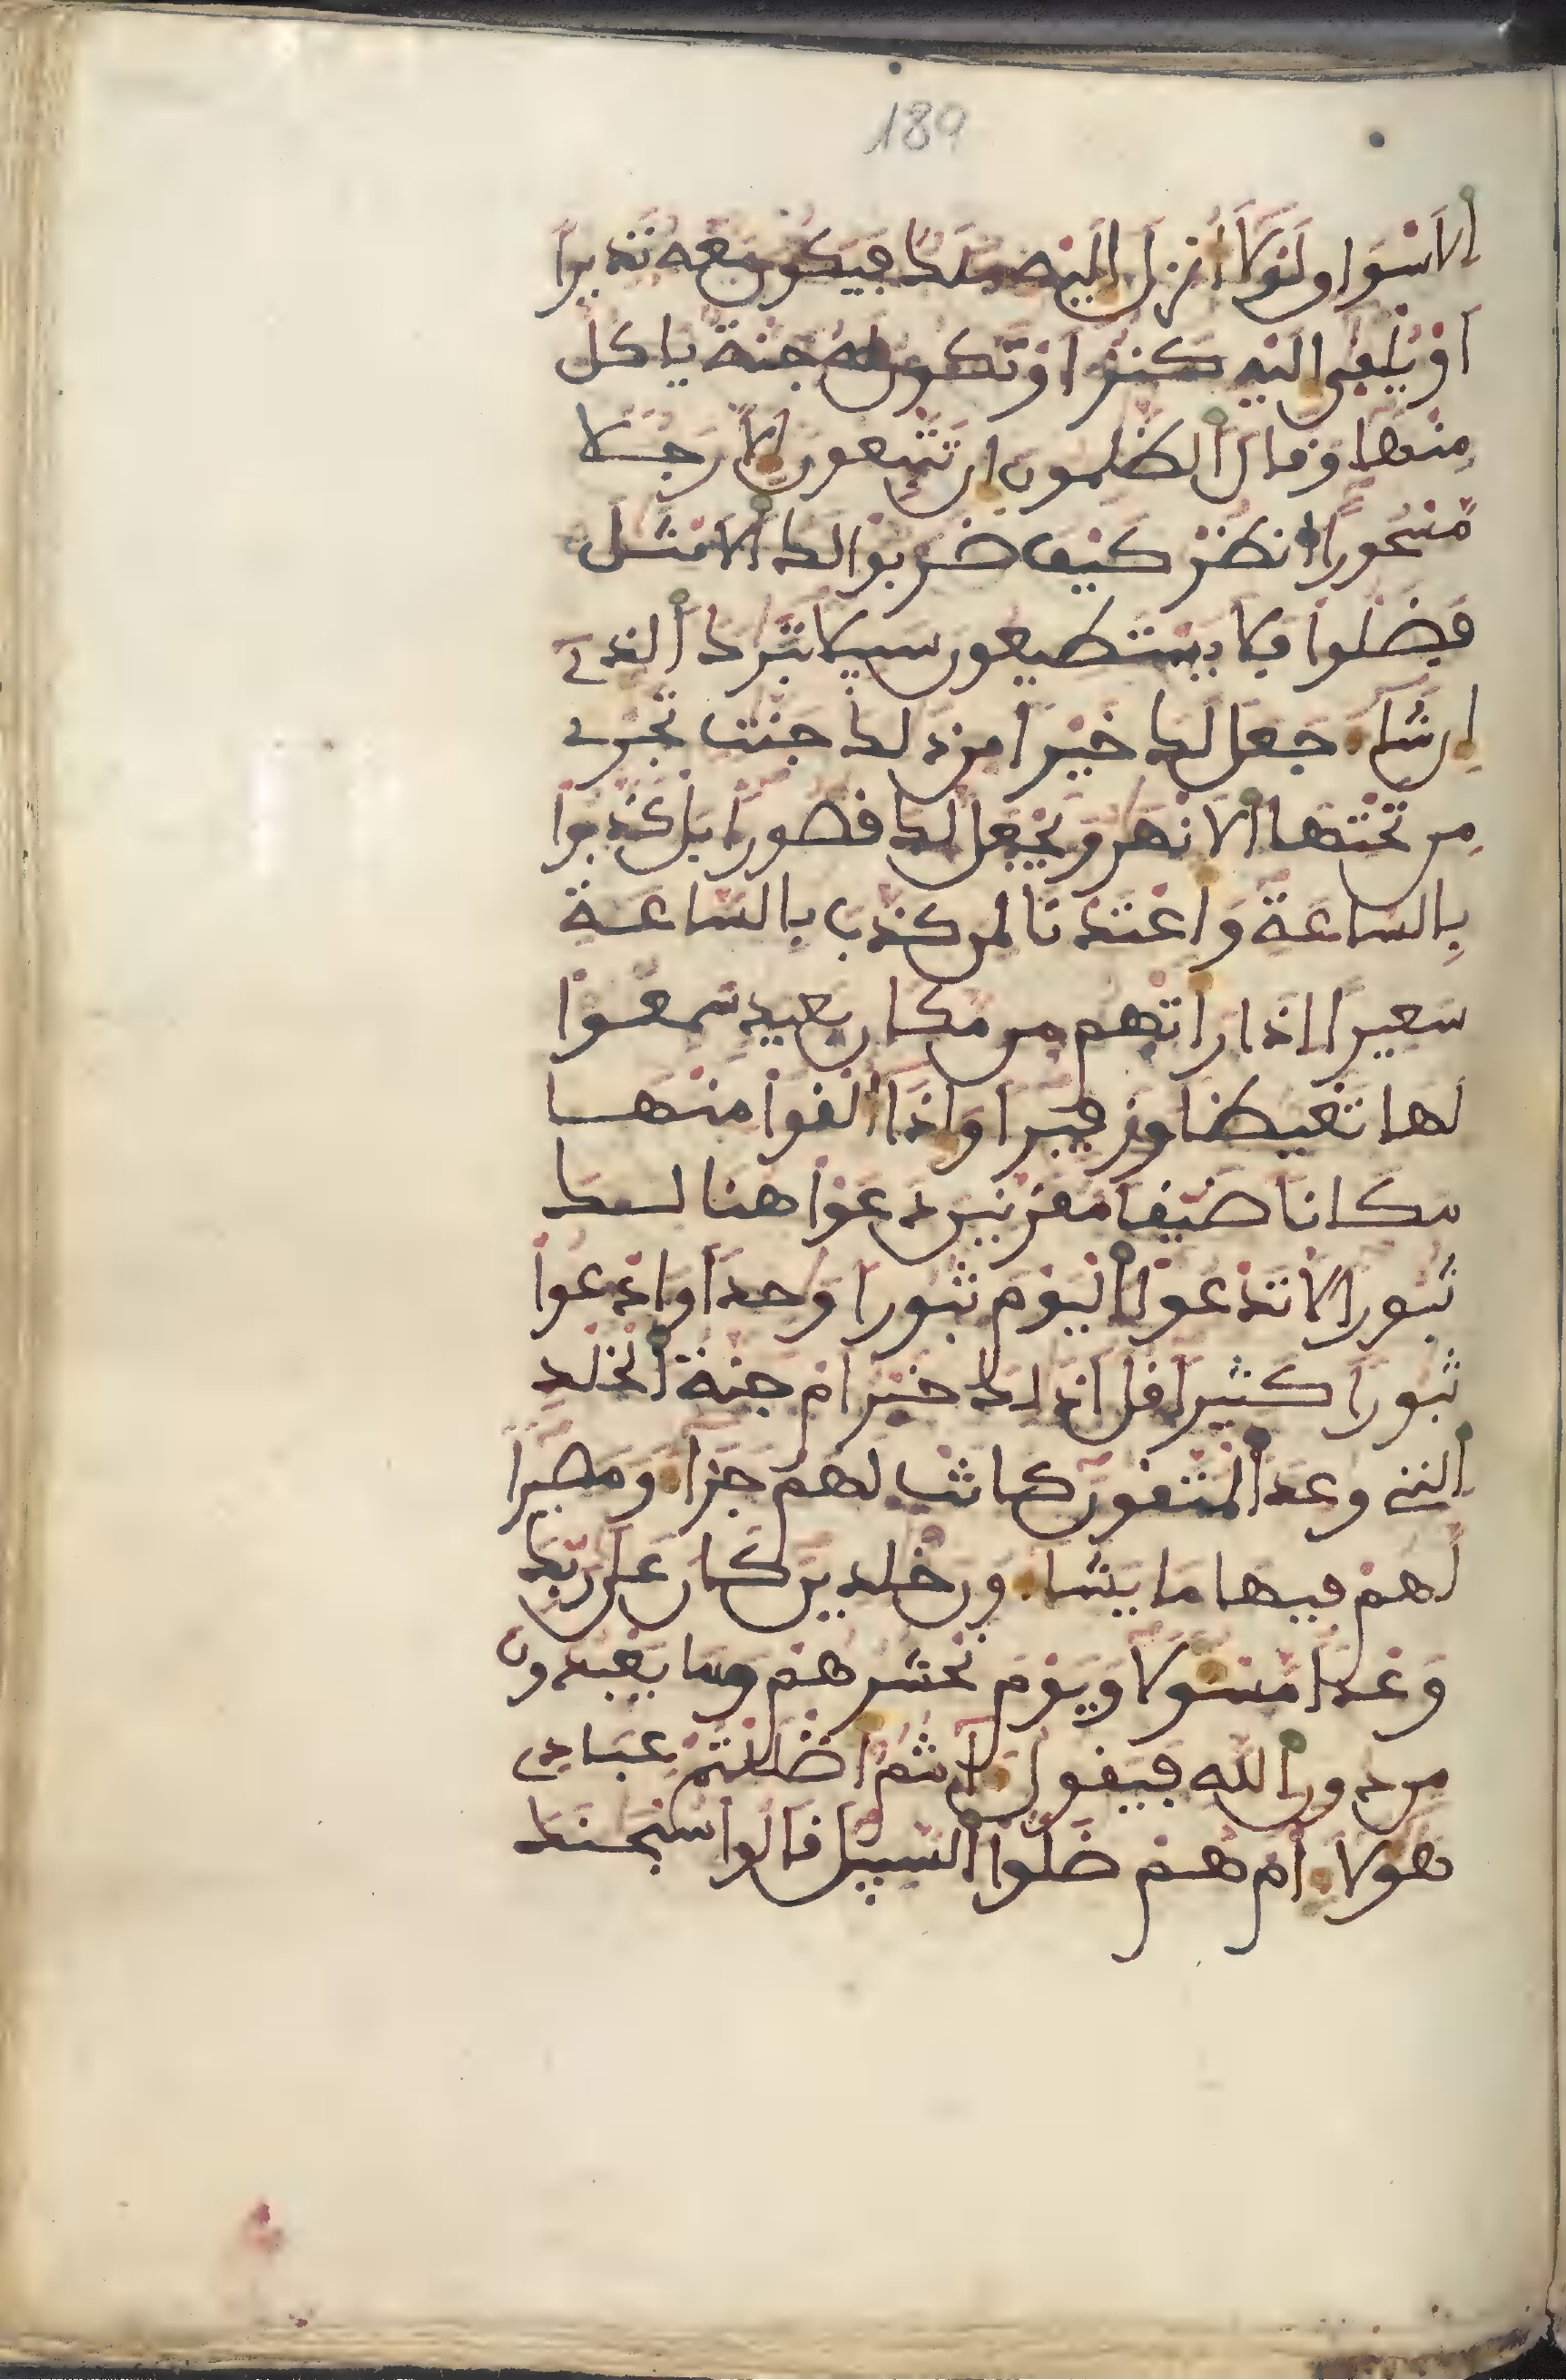 189
الاسواو لولا أنزل إليه ملك فيكون معه نذيرا
أو يلقى إليه كنز أو تكون له جنة ياكل
منها وقال الظلمون إن تتبعون إلا رجلا
مسحورا انظر كيف ضربوا لك الامثل
فضلوا فلا يستطيعون سبيلا تبرك الذي
إن شاء جعل لك خيرا من ذلك جنت تجري
من تحتها الانهر ويجعل لك قصورا بل كذبوا
بالساعة وأعتدنا لمن كذب بالساعة
سعيرا إذا رأتهم من مكان بعيد سمعوا
لها تغيظا وزفيرا وإذا ألقوا منها
مكانا ضيقا مقرنين دعوا هنالك
ثبورا لا تدعوا اليوم ثبورا وحدا وادعوا
ثبورا كثيرا قل أذلك خير أم جنة الخلد
التي وعد المتقون كانت لهم جزاء ومصيرا
لهم فيها ما يشاءون خلدين كان على ربك
وعدا مسولا ويوم نحشرهم وما يعبدون
من دون الله فيقول أنتم أضللتم عبادي
هؤلاء أم هم ضلوا السبيل قالوا سبحنك